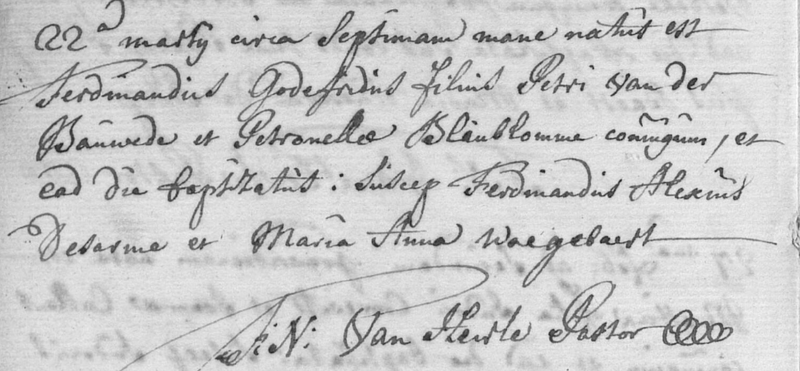 22a martij circa septimam mane natus est
Ferdinandus Godefridus filius Petri Van der
Bauwede et Petronellae Blaublomme conjugum, et
ead die baptizatus: suscep Ferdinandus Alexius
Desarme et Maria Anna Waegebaert
J: N: Van Heirle Pastor